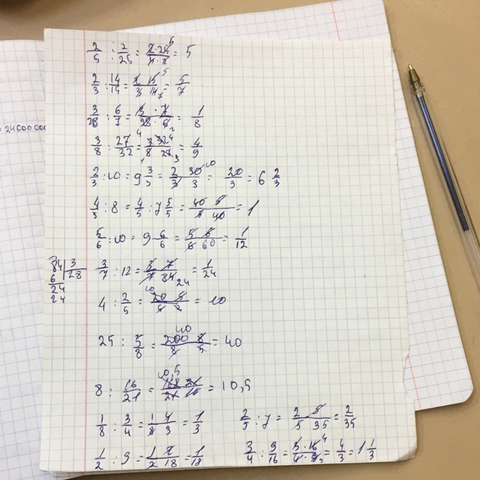 = 24000000
2/5 : 2/25 = 2·25/5·2 = 5
2/3 : 14/15 = 2·15/3·14 = 5/7
3/28 : 6/7 = 3·7/28·6 = 1/8
3/8 : 27/32 = 3·32/8·27 = 4/9
2/3 : 10 = 9 3/3 = 2·30/3·3 = 20/3 = 6 2/3
4/5 : 8 = 4/5 : 7 5/5 = 40·5/5·40 = 1
5/6 : 10 = 9 6/6 = 5·6/6·60 = 1/12
84 | 3 28 6 24 24 3/7 : 12 = 3·7/7·84 = 1/24
4 : 2/5 = 20·5/5·2 = 10
25 : 5/8 = 200·8/8·5 = 40
8 : 16/21 = 168·21/21·16 = 10,5
1/8 : 3/4 = 1·4/8·3 = 1/3 2/5 : 7 = 2·5/5·35 = 2/35
1/2 : 9 = 1·2/2·18 = 1/18 3/4 : 9/16 = 3·16/4·9 = 4/3 = 1 1/3